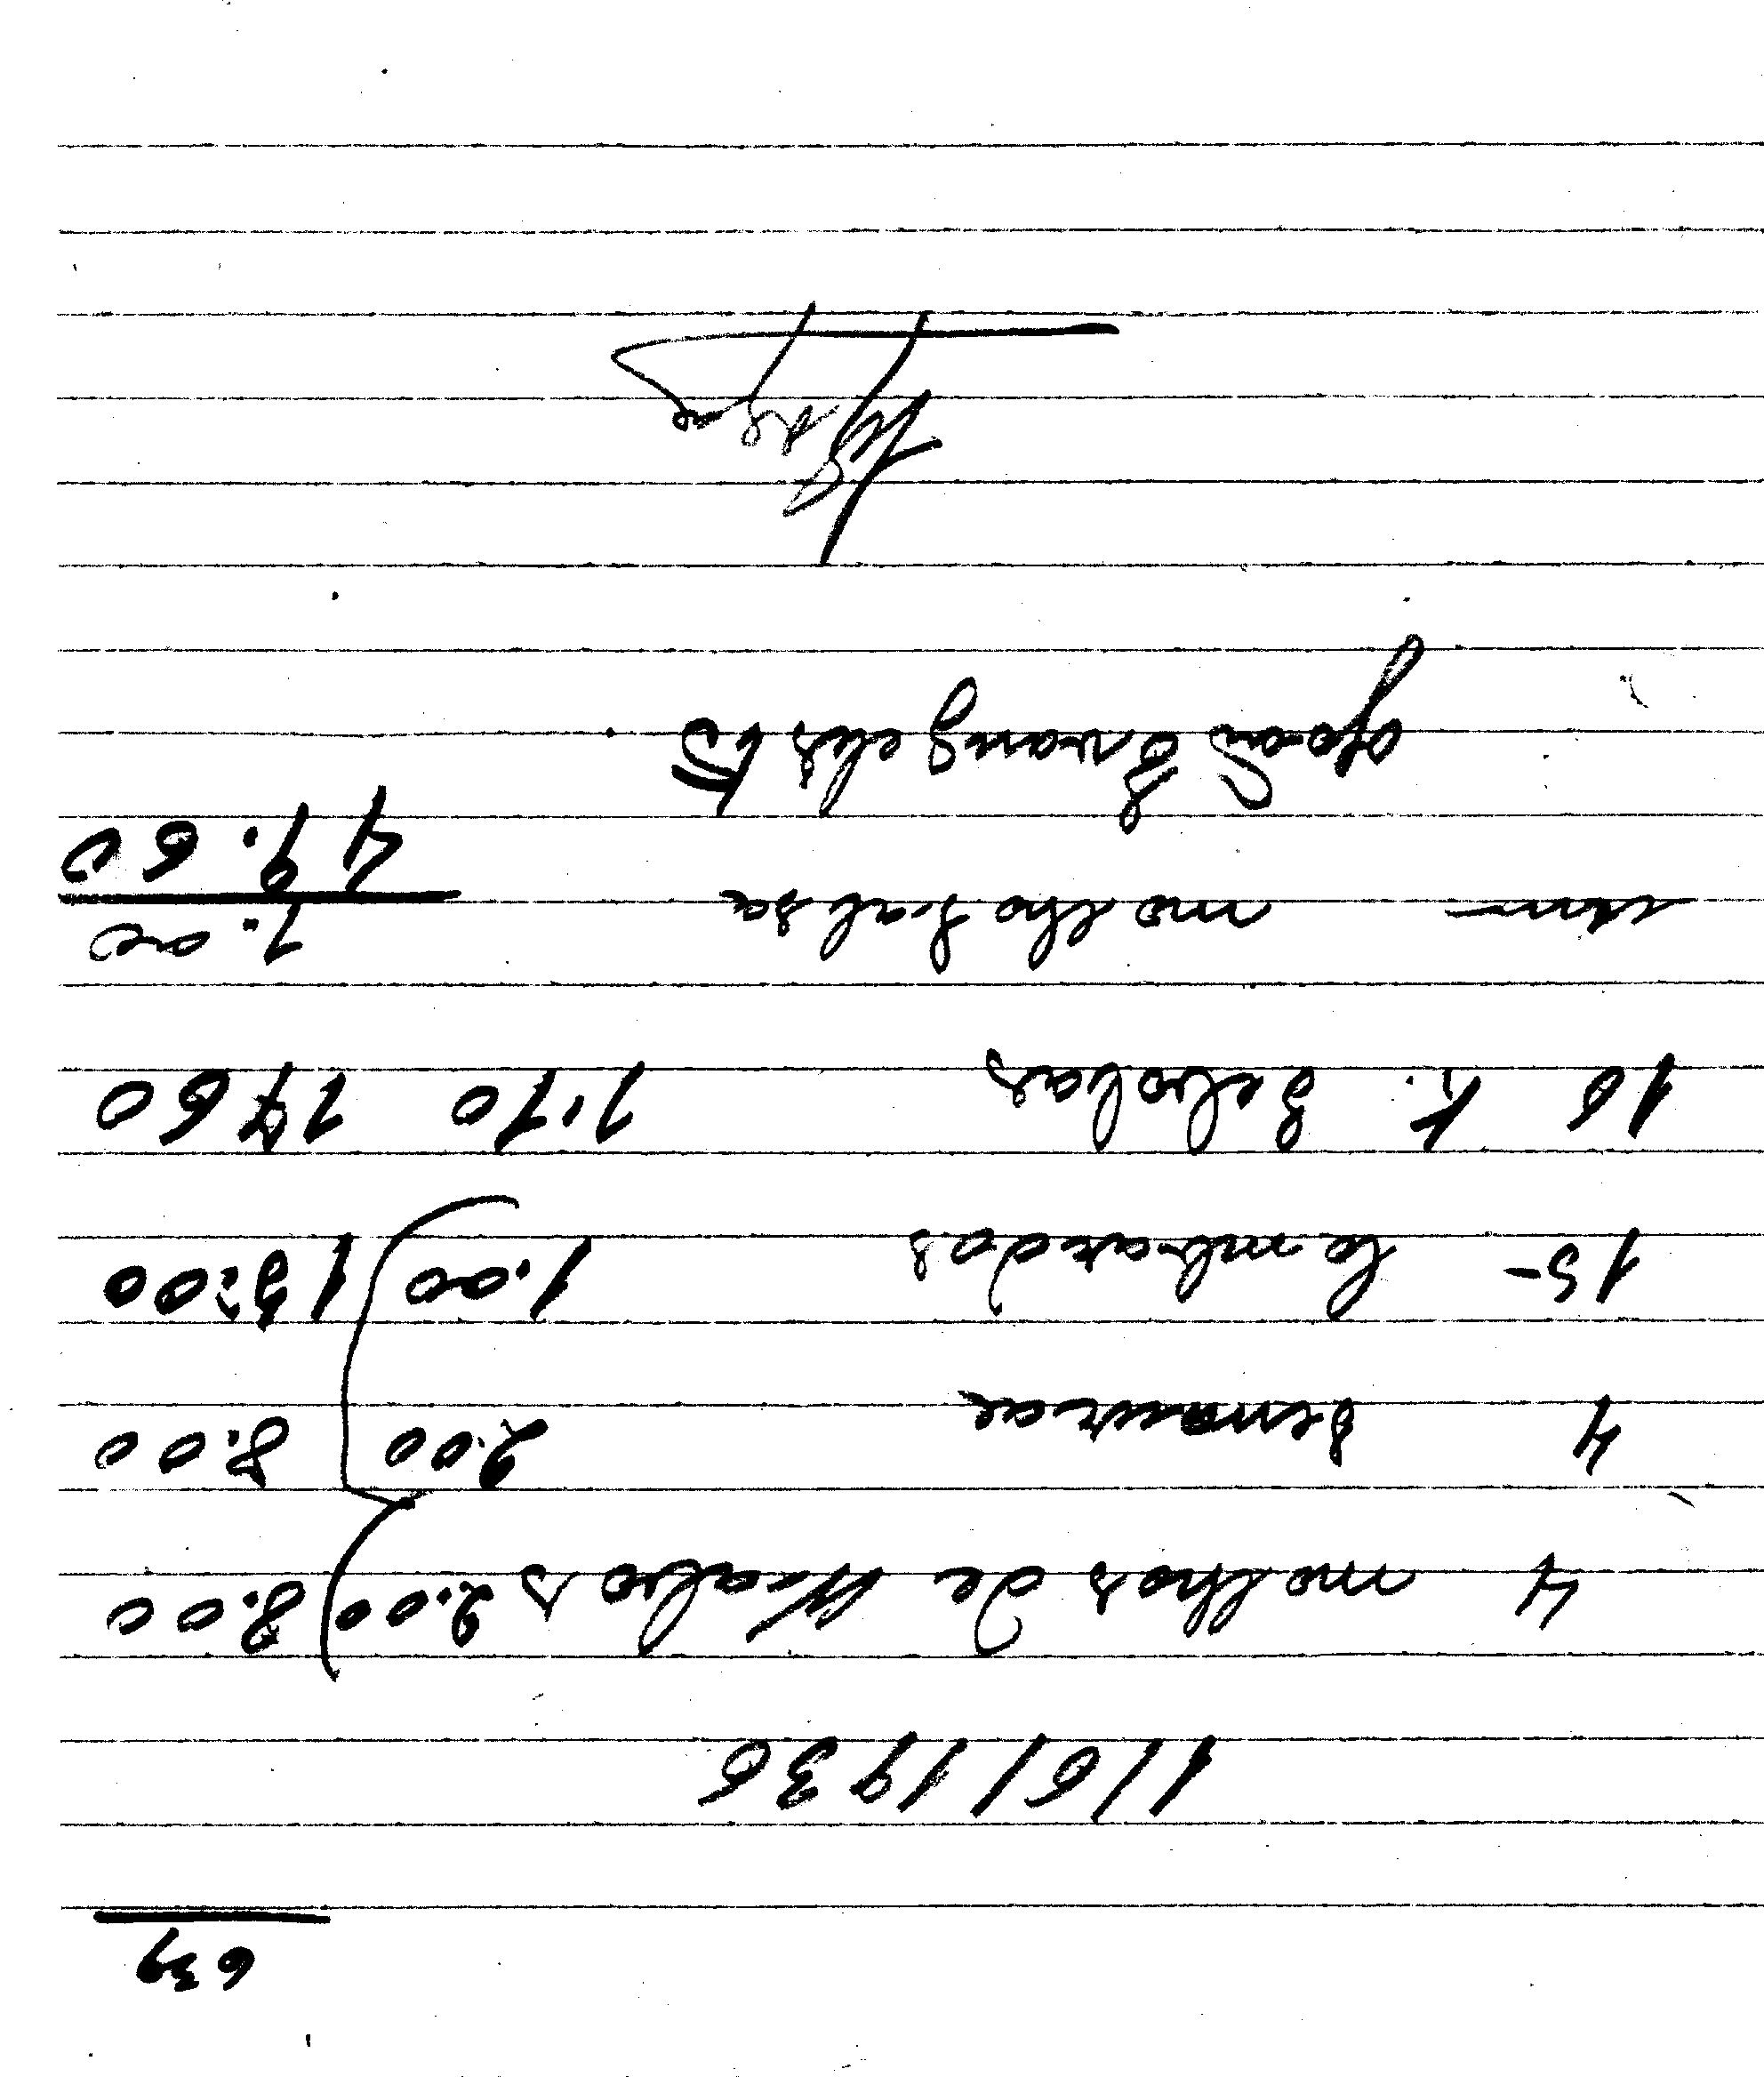 639
1/6/1936
4 molhos de Nabos 2.00 8.00
4 senouras 2.00 8.00
15- lombardos 1.00 15:00
16 k. Sebolas 1.10 1760
um molho salsa 1.00
49.60
João Evangelis